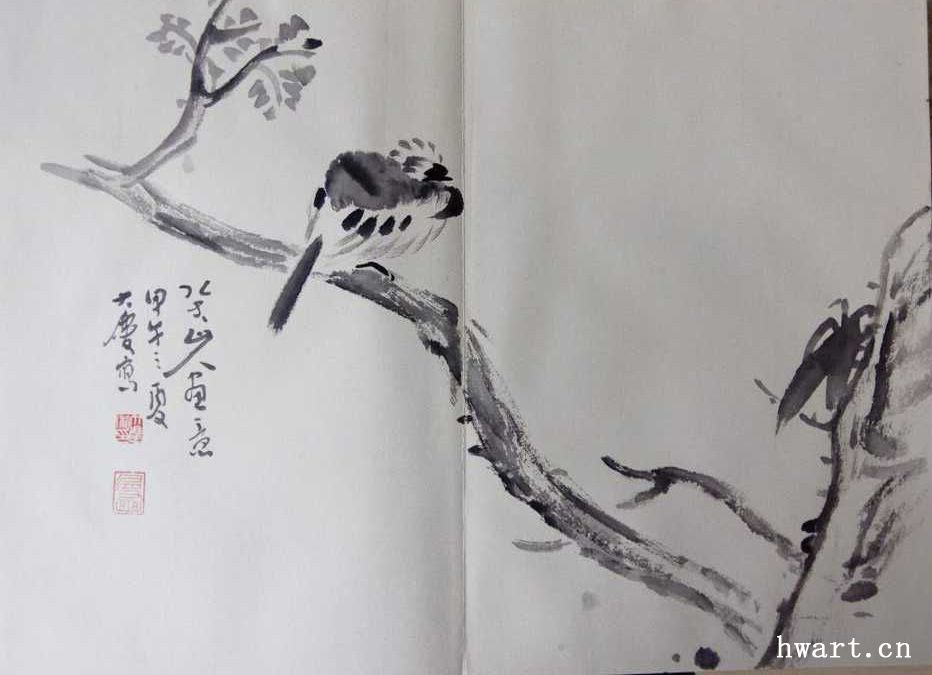 八大山人畫意
甲午之夏
大慶寫
hwart.cn